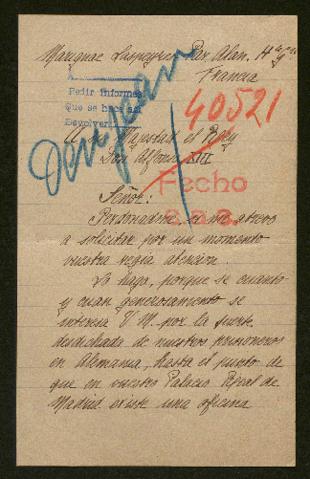 Marignac Laspeyres Par. Alan. Hte Gne
Francia
Pedir informes
Que se hace así
Devolver
40521
A su Majestad el Rey
Don Alfonso XIII
Fecho
Señor:
Perdonadme si me atrevo
a solicitar por un momento
vuestra regia atención.
Lo hago, porque se cuanto
y cuan generosamente se
interesa V. M. por la suerte
desdichada de nuestros prisioneros
en Alemania, hasta el punto de
que en vuestro Palacio Real de
Madrid existe una oficina